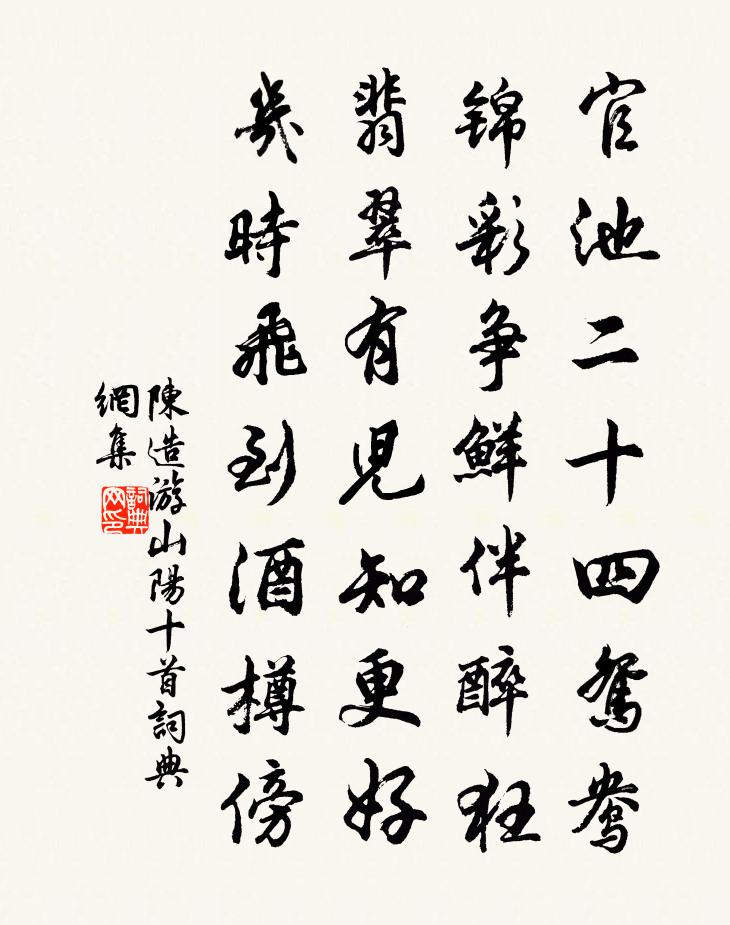 官池二十四鴛鴦
錦彩争鮮伴醉狂
翡翠有児知更好
幾時飛到酒樽傍
陳造游山陽十首詞典
網集
詞典
网印